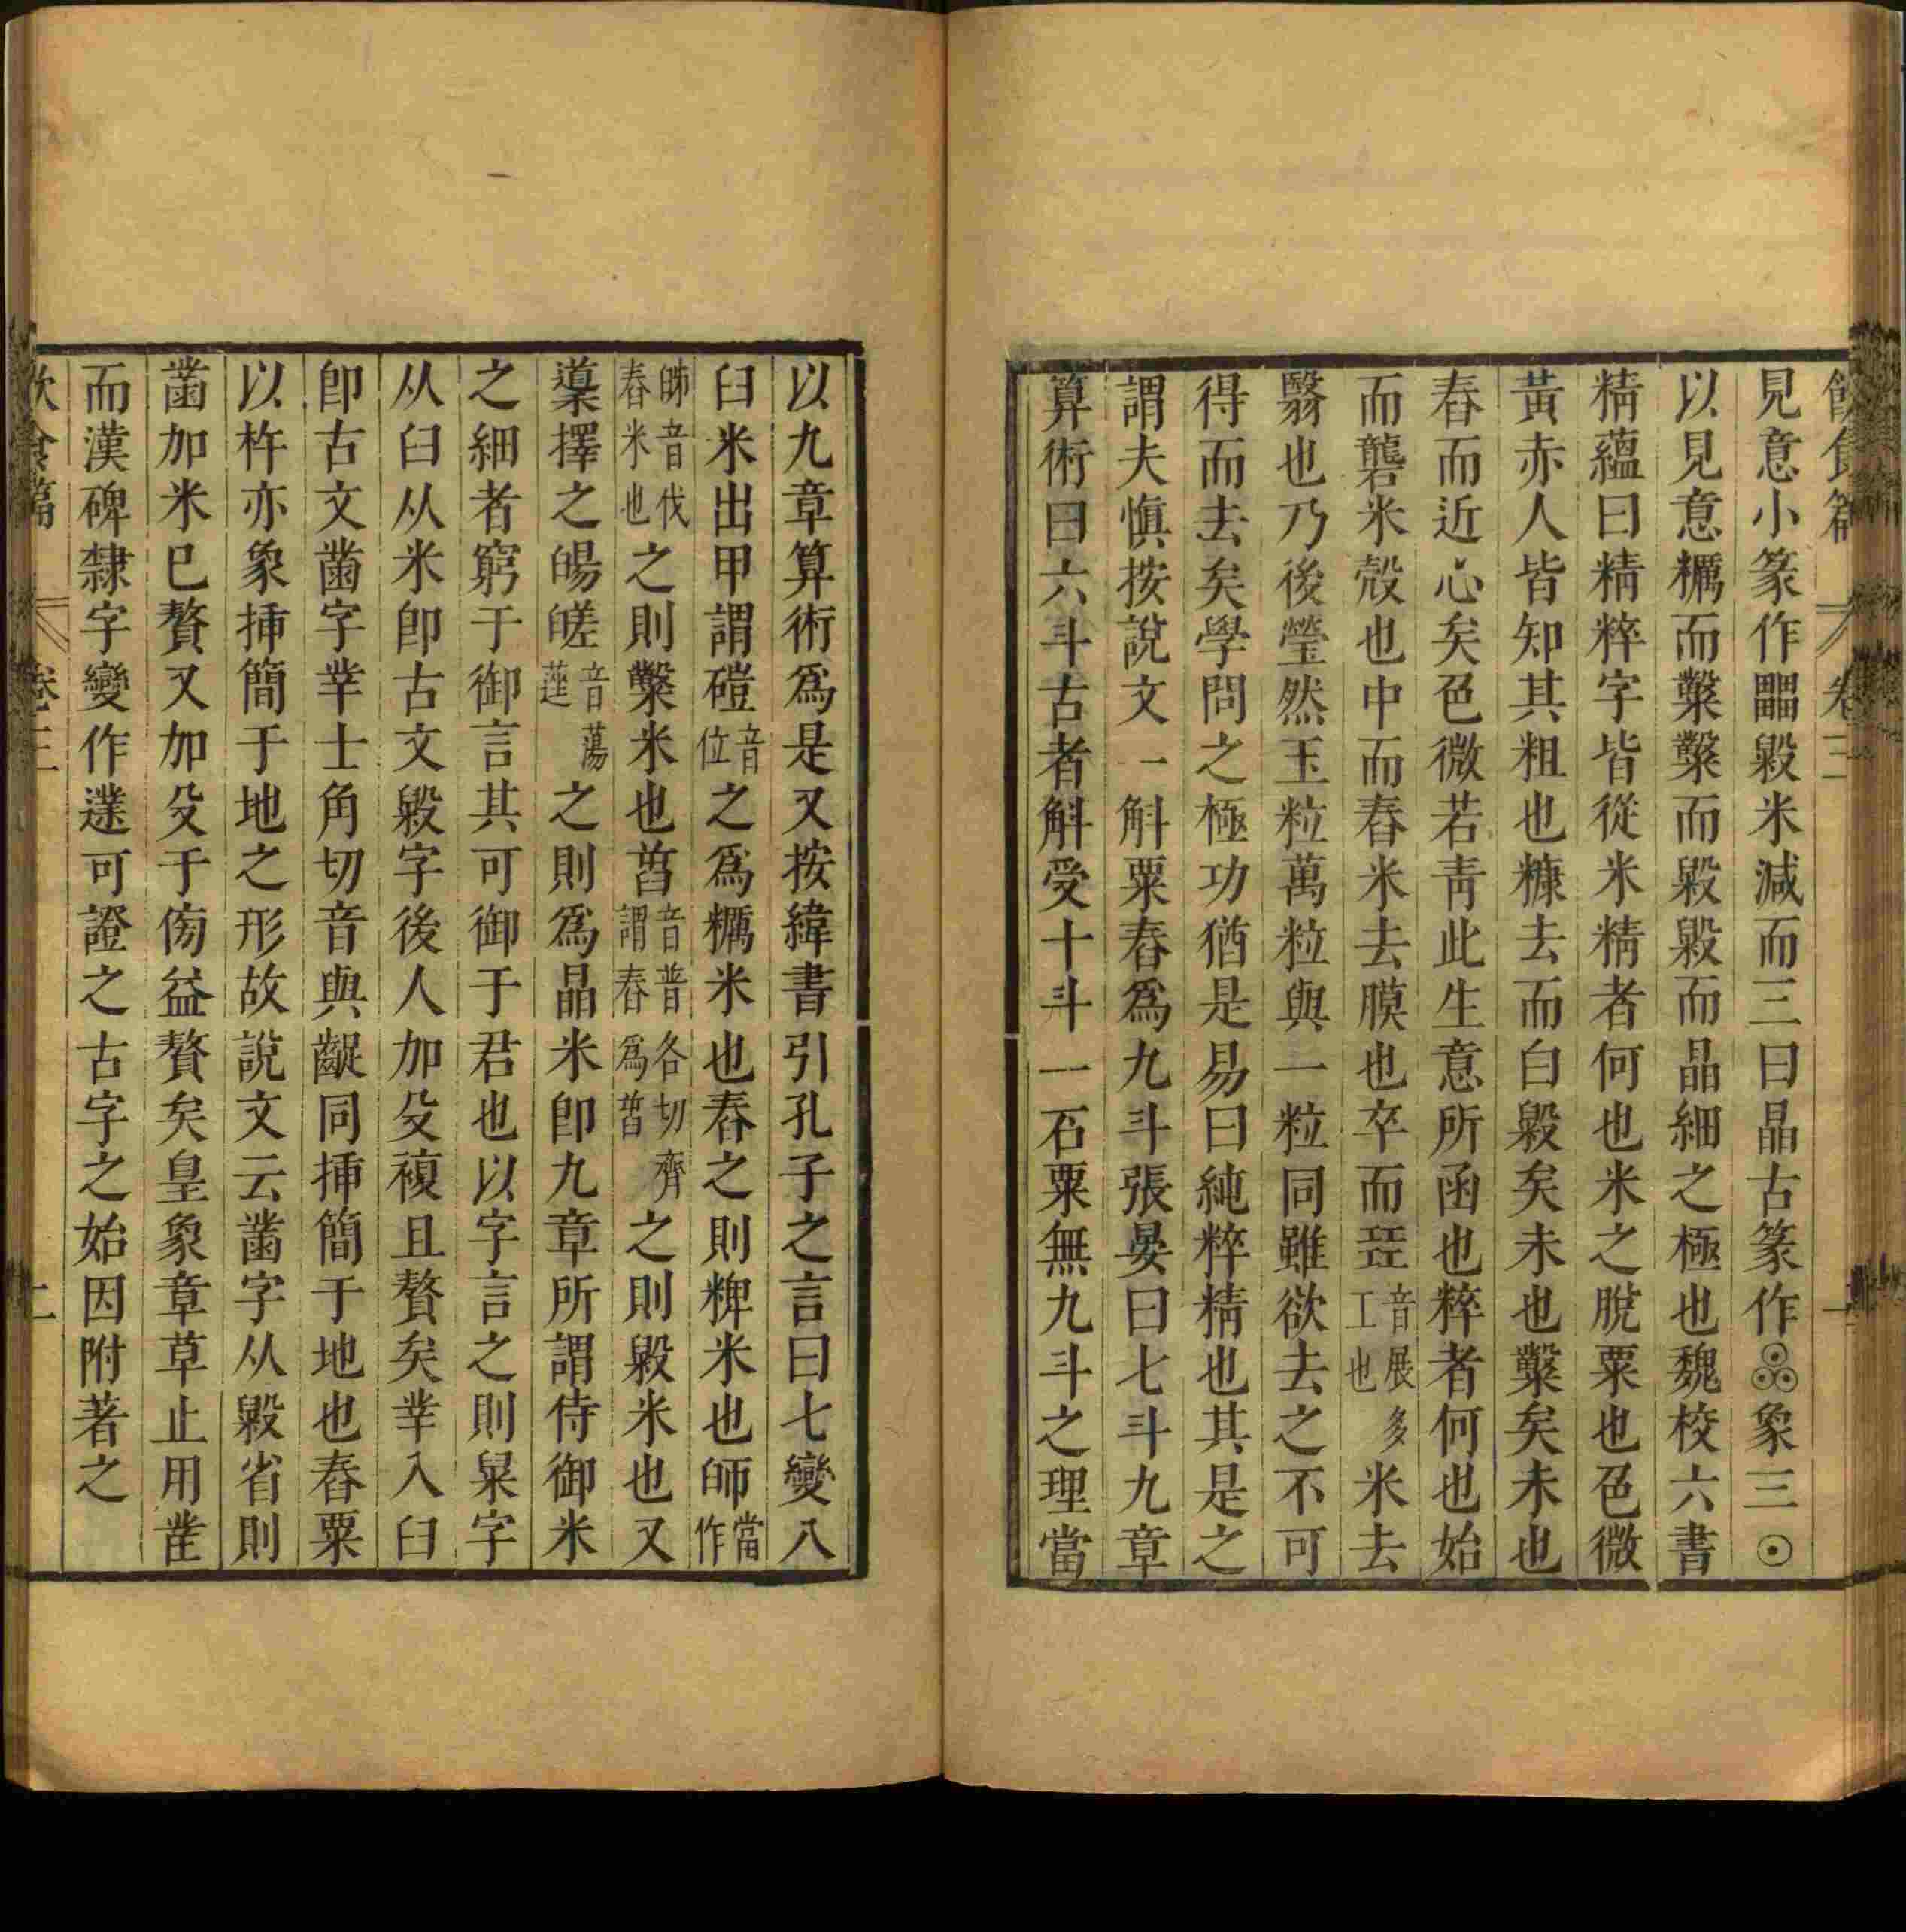 飲食篇 卷三 一
見意小篆作畾毇米減而三曰晶古篆作象三⊙
以見意糲而糳糳而毇毇而晶細之極也魏校六書
精蘊曰精粹字皆從米精者何也米之脫粟也色微
黃赤人皆知其粗也糠去而白毇矣未也糳矣未也
舂而近心矣色微若青此生意所函也粹者何也始
而礱米殼也中而舂米去膜也卒而㠭音展多工也米去
翳也乃後瑩然玉粒萬粒與一粒同雖欲去之不可
得而去矣學問之極功猶是易曰純粹精也其是之
謂夫慎按說文一斛粟舂為九斗張晏曰七斗九章
算術曰六斗古者斛受十斗一石粟無九斗之理當
以九章算術爲是又按緯書引孔子之言曰七變八
臼米出甲謂磑音位之爲糲米也舂之則粺米也師當作
䏽音伐舂米也之則糳米也䣽音普各切齊謂舂爲䣽之則毇米也又
䆃擇之暘㿷音蕩蓙之則爲晶米卽九章所謂侍御米
之細者窮于御言其可御于君也以字言之則㮂字
从臼从米卽古文毇字後人加殳複且贅矣丵入臼
卽古文䥣字丵士角切音與齱同揷簡于地也舂粟
以杵亦象揷簡于地之形故說文云䥣字从毇省則
䥣加米已贅又加殳于傍益贅矣皇象章草止用凿
而漢碑隸字變作蓬可證之古字之始因附著之
飲食篇 卷三 二